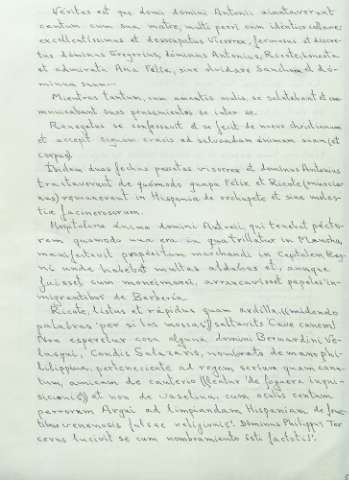 Veritas est que domi domini Antonii ainatraverunt
cantum cum sua matre, multi pueri cum identius colloure,
excellentissimus et desocupatus Visorex, fermosus et discre-
tus dominus Gregorius, dominus Antonius, Ricote, honesta
et admirata Ana Felix, sine olvidare Sanchum et dó-
minam suam.-
Mientras tantum, cum amantis mutis, se salutabant et co-
municabant suos pensamientos se inter se.
Renegatus se confessavit et se fecit de nuevo christianum
et accepit signum crucis ad salvandam animam suam (et
corpus).
Ibidem duas fechas posatas visorrex et dominus Antonius
tractaverunt de quomodo guapa Felix et Ricote (muscie
nus) remanerent in Hispania de rechupete et sine moles-
tiae facinerosorum.
Hospitalaria anima domini Antonii, qui tenebat pécto-
rem quomodo una era in qua trillatur in Mancha,
manifestavit propositum marchandi in Capitalem Reg-
ni unde habebat multas aldabas et, aunque
fuisset cum monsimonsi, arrancavisset papeles in-
migrantibus de Barberia.
Ricote, listus et rápidus quam ardilla, ((midendo
palabras 'por si las moscas')) saltavit: 'Cave canem!
Non esperetur cosa alguna, domini Bernardini Ve-
lasqui, Condis Salazaris, nombrato de mano phi-
lilippina, perteneciente ad regem serium quam cane-
tum, amicum de cauterio ((centur 'de foguera inqui-
sicionis')) et non de vaselina, cum oculis centum
perrorum Argui ad limpiandam Hispaniam de fruc-
tibus venenosis falsae religionis'. Dominus Philippus Ter
cerus lucivit se cum nombramiento isti factoti'.